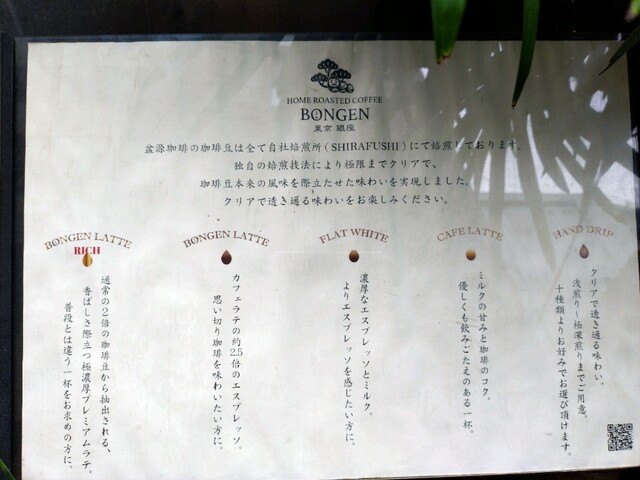 HOME ROASTED COFFEE
BONGEN
東京 銀座
盆源珈琲の珈琲豆は全て自社焙煎所(SHIRAFUSHI)にて焙煎しております。
独自の焙煎技法により極限までクリアで、
珈琲豆本来の風味を際立たせた味わいを実現しました。
クリアで透き通る味わいをお楽しみください。
BONGEN LATTE
RICH
通常の2倍の珈琲豆から抽出される、
香ばしさ際立つ極濃厚プレミアムラテ。
普段とは違う一杯をお求めの方に。
BONGEN LATTE
カフェラテの約2.5倍のエスプレッソ。
思い切り珈琲を味わいたい方に。
FLAT WHITE
濃厚なエスプレッソとミルク。
よりエスプレッソを感じたい方に。
CAFE LATTE
ミルクの甘みと珈琲のコク。
優しくも飲みごたえのある一杯。
HAND DRIP
クリアで透き通る味わい。
浅煎り〜極深煎りまでご用意。
十種類よりお好みでお選び頂けます。